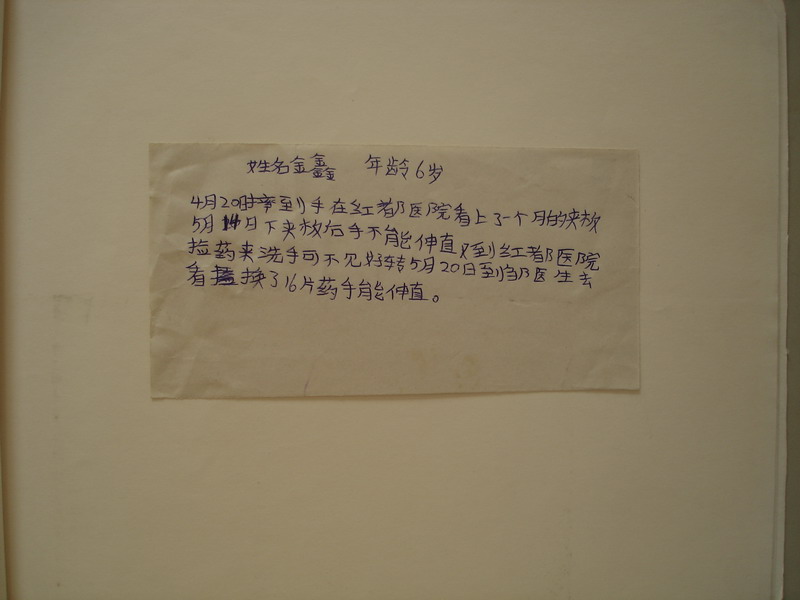 姓名金鑫 年龄6岁
4月20日摔到手在红都医院看上了一个月的夹板
5月14日下夹板后手不能伸直又到红都医院
捡药来洗手可不见好转5月20日到邹医生去
看换了16片药手能伸直。